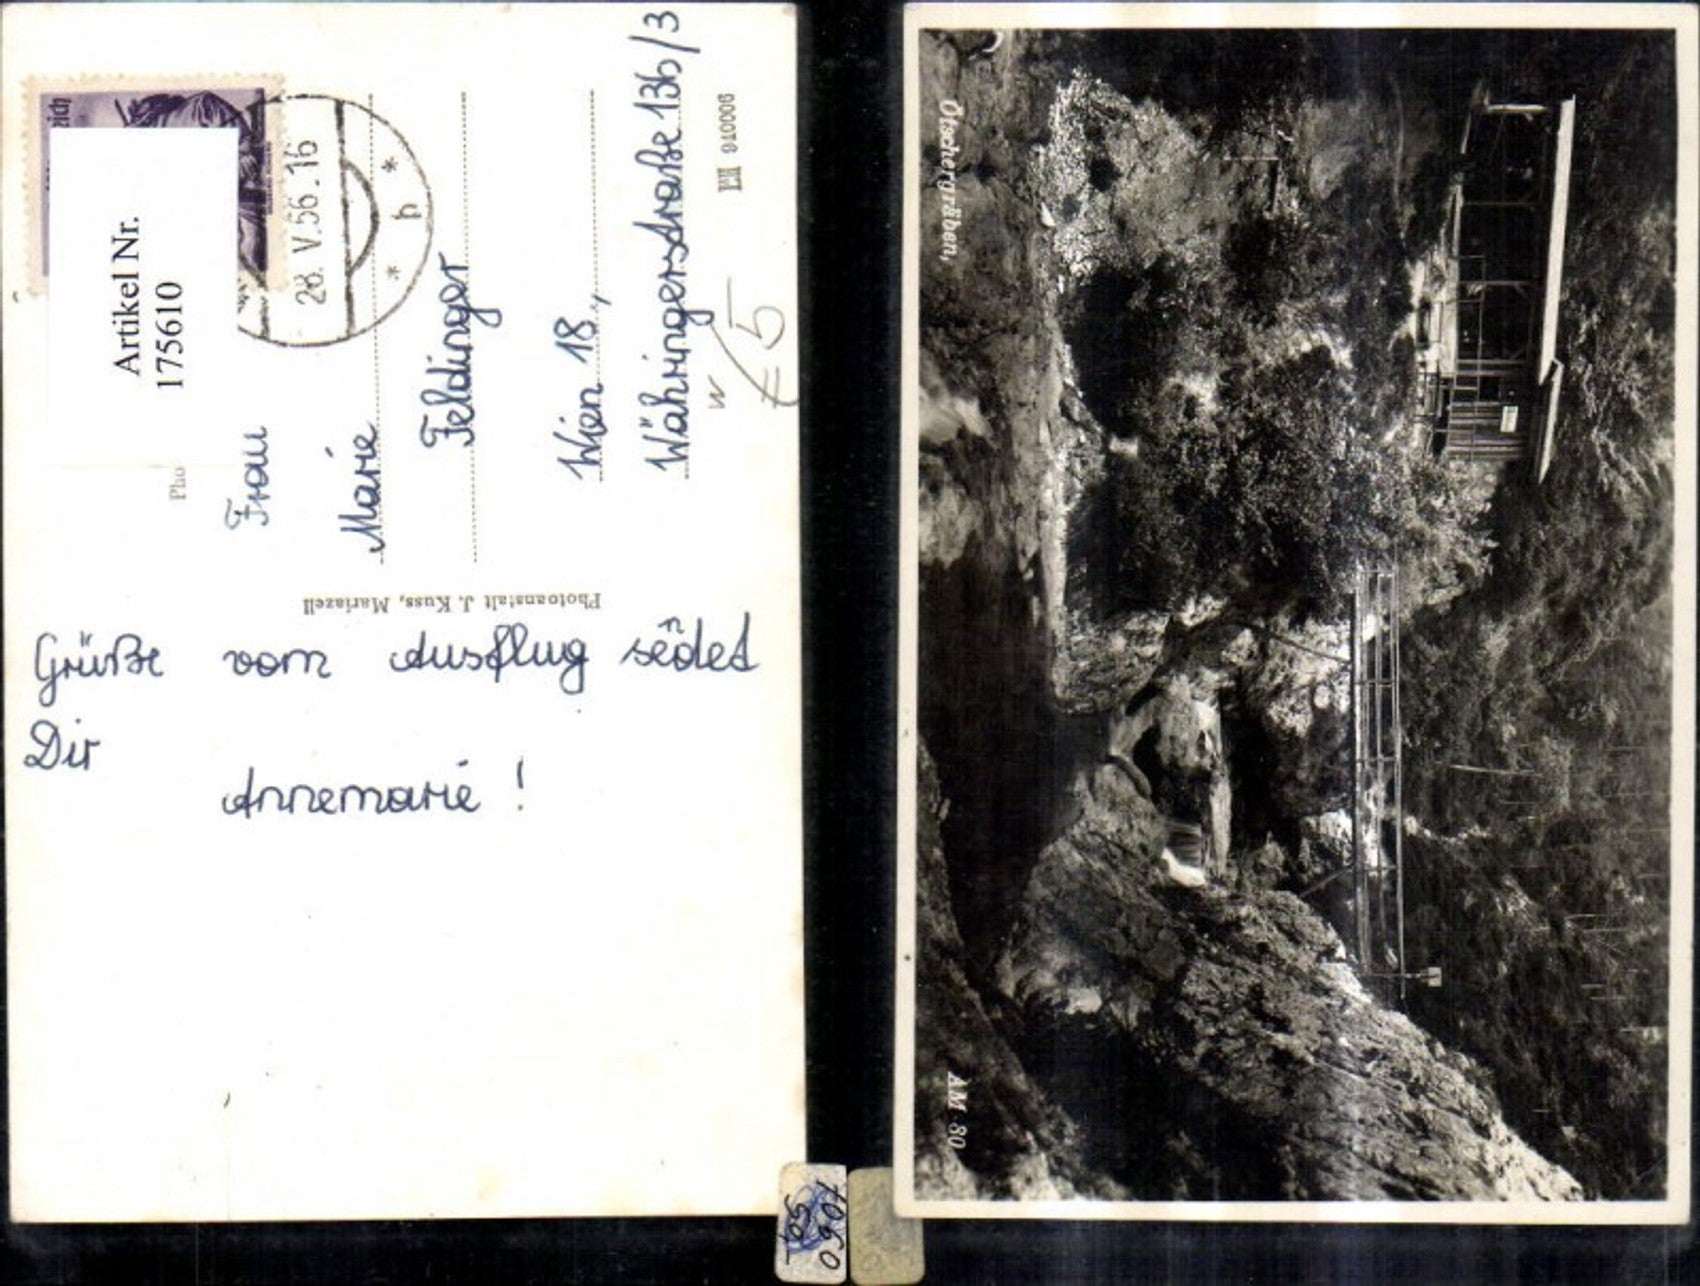 eich
Artikel Nr.
175610
28. V. 56. 16
* b *
Frau
Marie
Feldinger
Wien 18,
Währingerstraße 136/3
940006
€ 5
Photoanstalt J. Kuss, Mariazell
Grüße vom Ausflug sendet
Dir
Annemarie !
Ötschergräben,
AM 80